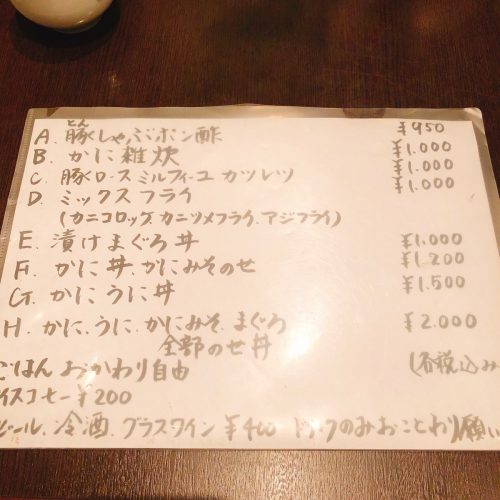 とん
A. 豚しゃぶポン酢 ¥950
B. かに雑炊 ¥1.000
C. 豚ロース ミルフィーユ カツレツ ¥1.000
D. ミックスフライ ¥1.000
(カニコロッケ. カニツメフライ. アジフライ)
E. 漬けまぐろ丼 ¥1.000
F. かに丼.かにみそのせ ¥1.200
G. かに、うに丼 ¥1.500
H. かに、うに.かにみそ.まぐろ ¥2.000
全部のせ丼
ごはん おかわり自由 (各税込み
イスコーヒー¥200
ビール、冷酒、グラスワイン ¥400 ドリンクのみおことわり願い